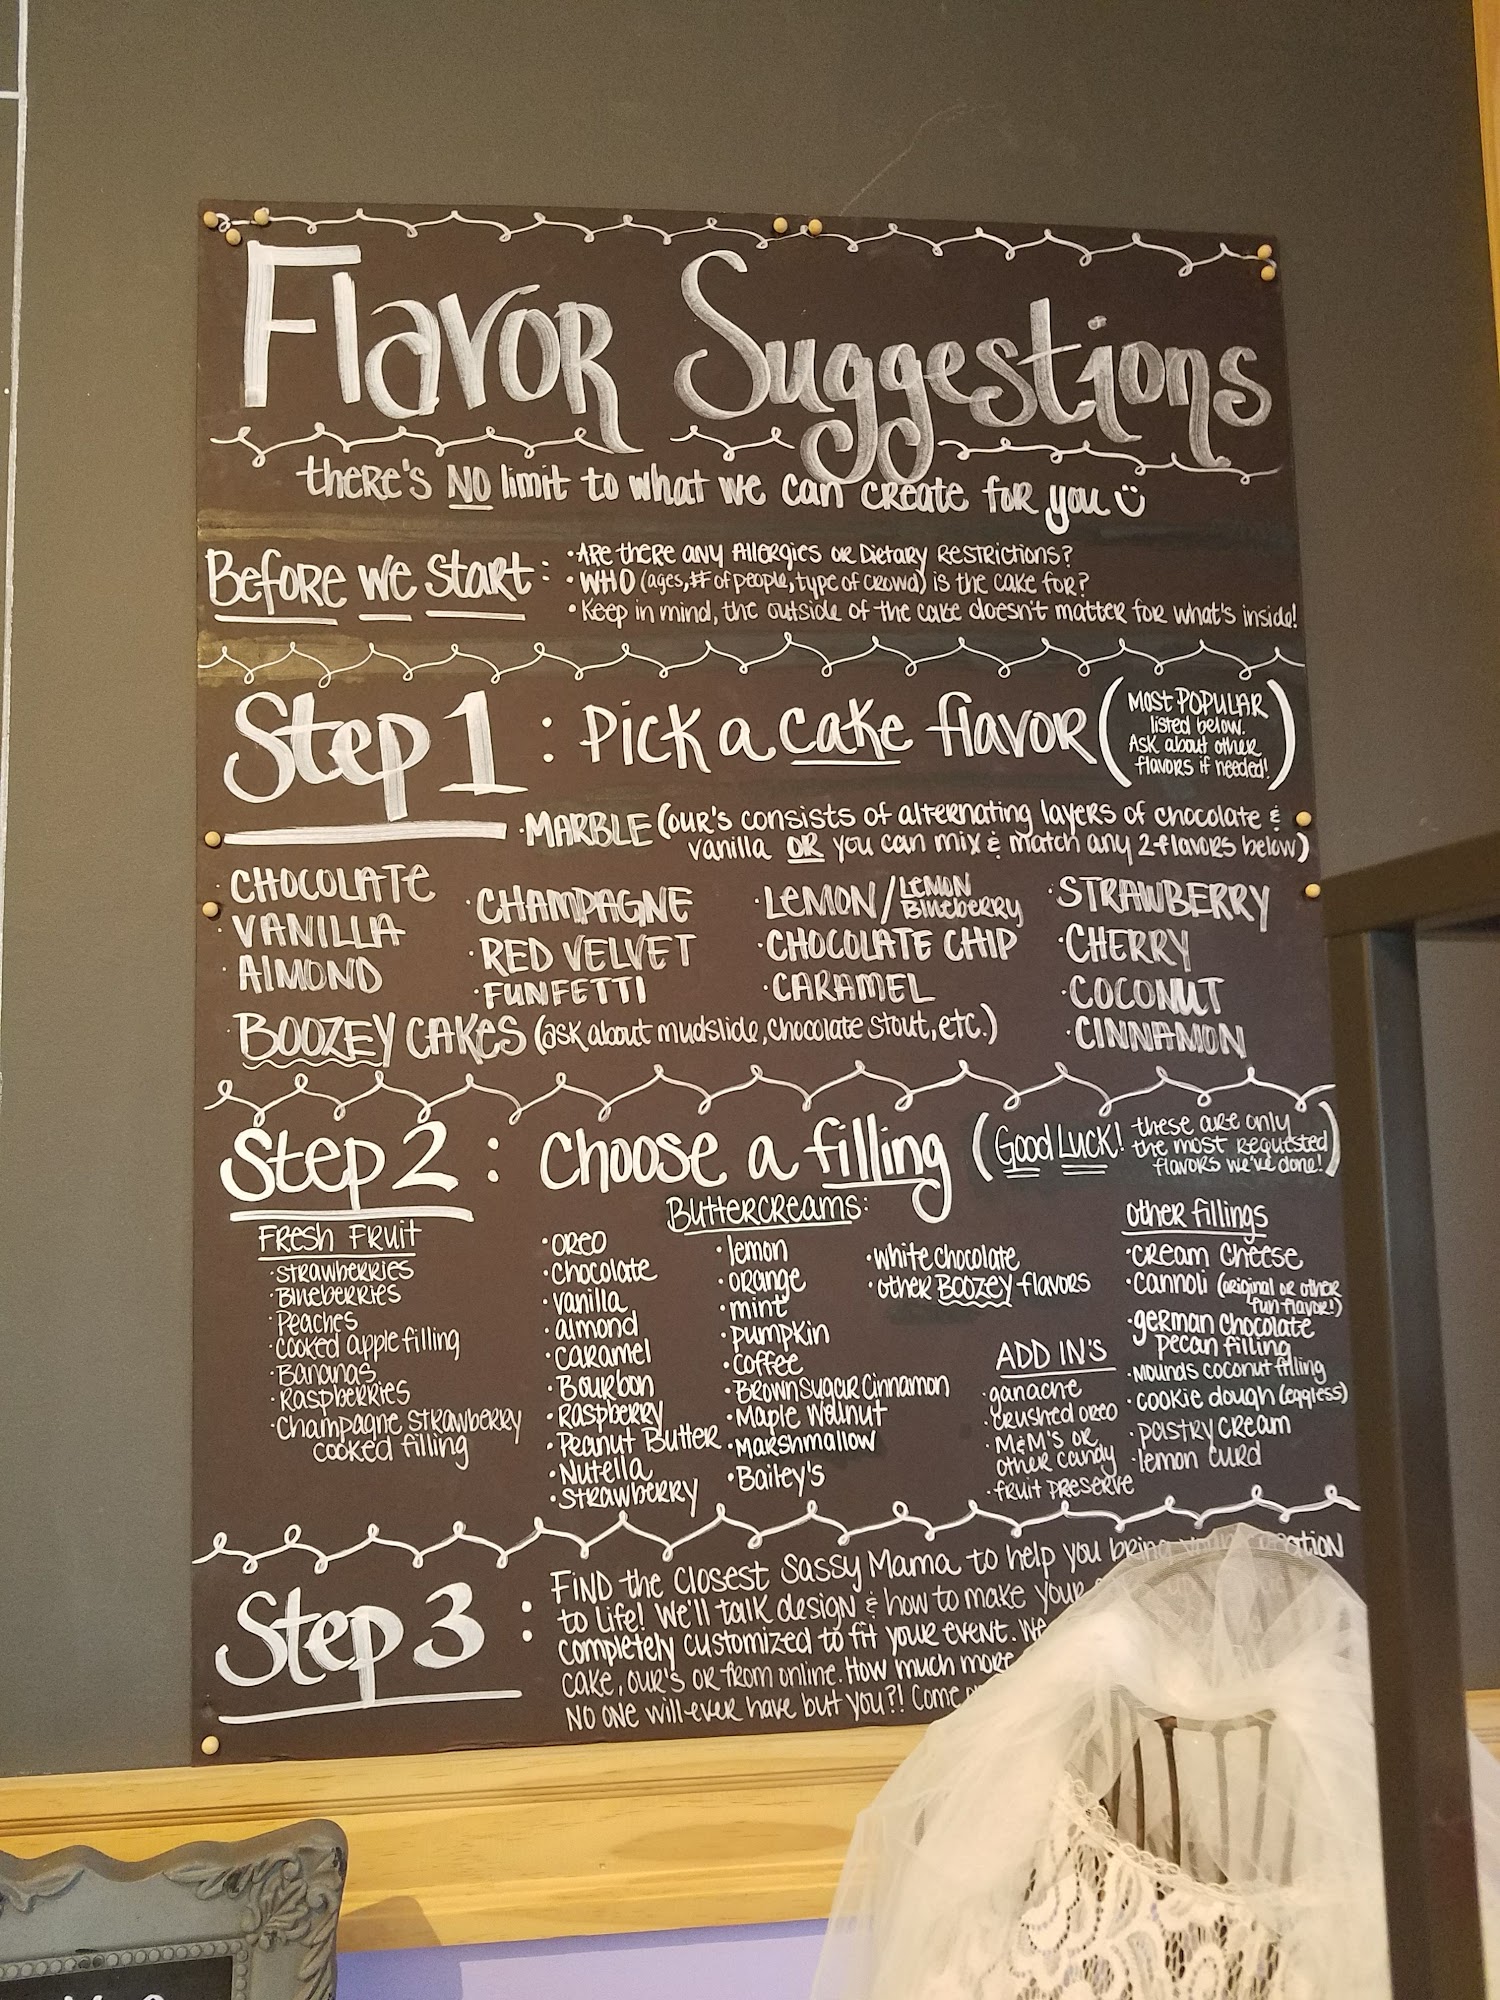 Flavor Suggestions
there's NO limit to what we can create for you
Before we start:
• Are there any Allergies or Dietary Restrictions?
• WHO (ages, # of people, type of crowd) is the cake for?
• Keep in mind, the outside of the cake doesn't matter for what's inside!
Step 1 : Pick a cake flavor
(Most POPULAR
listed below.
Ask about other
flavors if needed!)
• MARBLE (our's consists of alternating layers of chocolate &
vanilla OR you can mix & match any 2 flavors below)
• CHOCOLATE
• VANILLA
• ALMOND
• CHAMPAGNE
• RED VELVET
• FUNFETTI
• LEMON / LEMON
Blueberry
• CHOCOLATE CHIP
• CARAMEL
• STRAWBERRY
• CHERRY
• COCONUT
• CINNAMON
• BOOZEY CAKES (ask about mudslide, chocolate stout, etc.)
Step 2 : Choose a filling
(Good Luck! these are only
the most requested
flavors we've done!)
FRESH FRUIT
• Strawberries
• Blueberries
• Peaches
• cooked apple filling
• Bananas
• Raspberries
• Champagne Strawberry
cooked filling
Buttercreams:
• oreo
• chocolate
• vanilla
• almond
• caramel
• Bourbon
• Raspberry
• Peanut Butter
• Nutella
• Strawberry
• lemon
• orange
• mint
• pumpkin
• coffee
• Brown Sugar Cinnamon
• Maple Walnut
• Marshmallow
• Bailey's
• white chocolate
• other BOOZEY flavors
ADD IN'S
• ganache
• crushed oreo
• M&M's or
other candy
• fruit preserve
other fillings
• cream cheese
• cannoli (original or other
fun flavor!)
• german chocolate
pecan filling
• Mounds coconut filling
• cookie dough (eggless)
• pastry cream
• lemon curd
Step 3 :
Find the closest Sassy Mama to help you bring your creation
to life! We'll talk design & how to make your
completely customized to fit your event. We
cake, our's or from online. How much more
No one will ever have but you?! Come